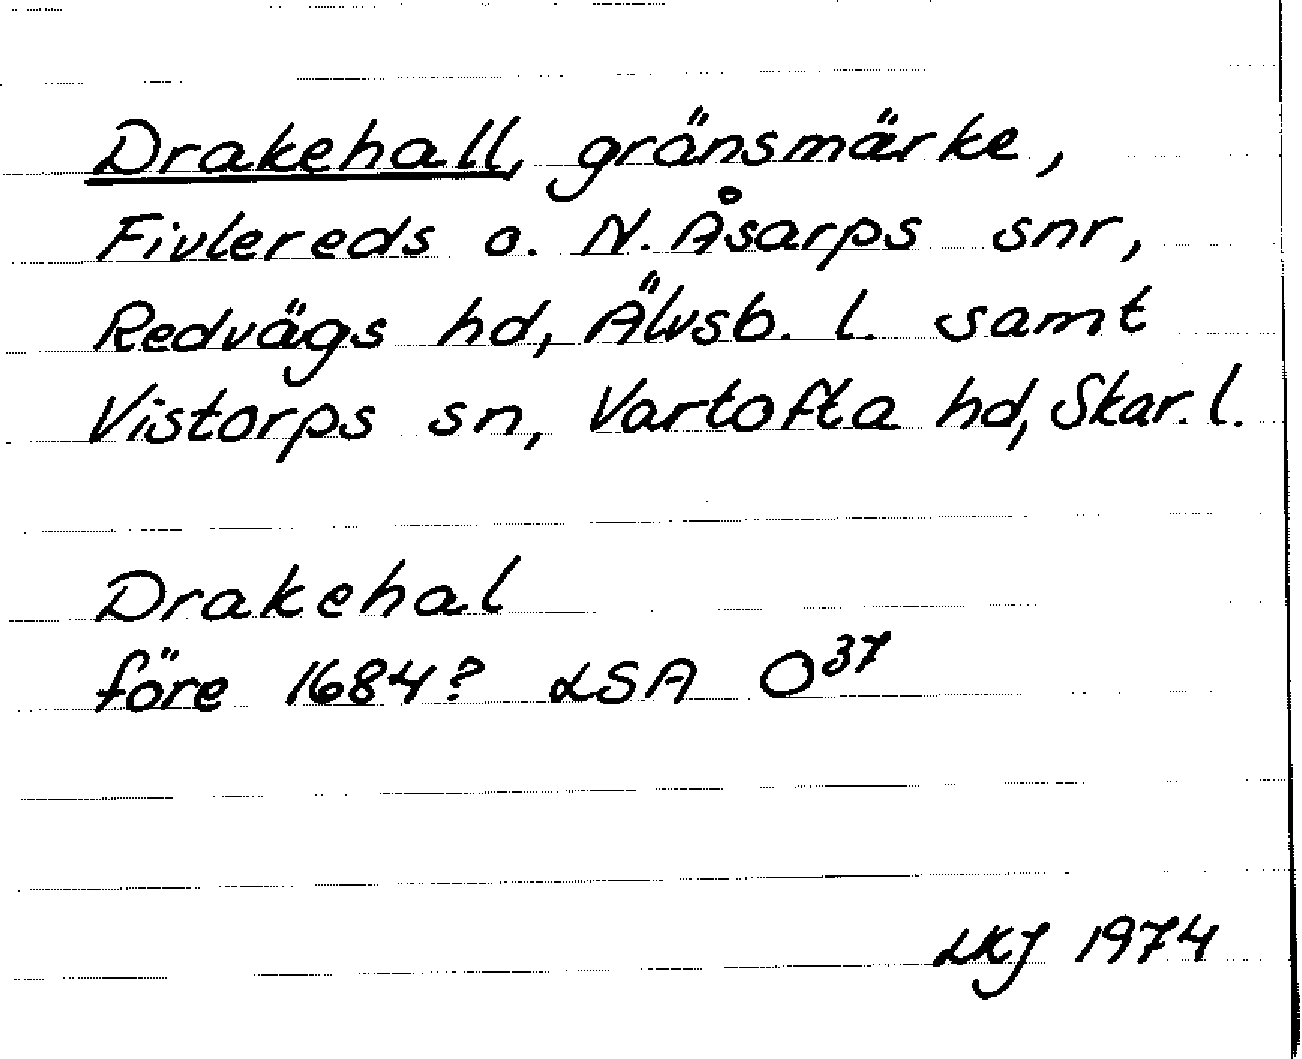 Drakehall, gränsmärke,
Fivlereds o. N. Åsarps snr,
Redvägs hd, Älvsb. l. samt
Vistorps sn, Vartofta hd, Skar. l.
Drakehal
före 1684? LSA O37
LKJ 1974